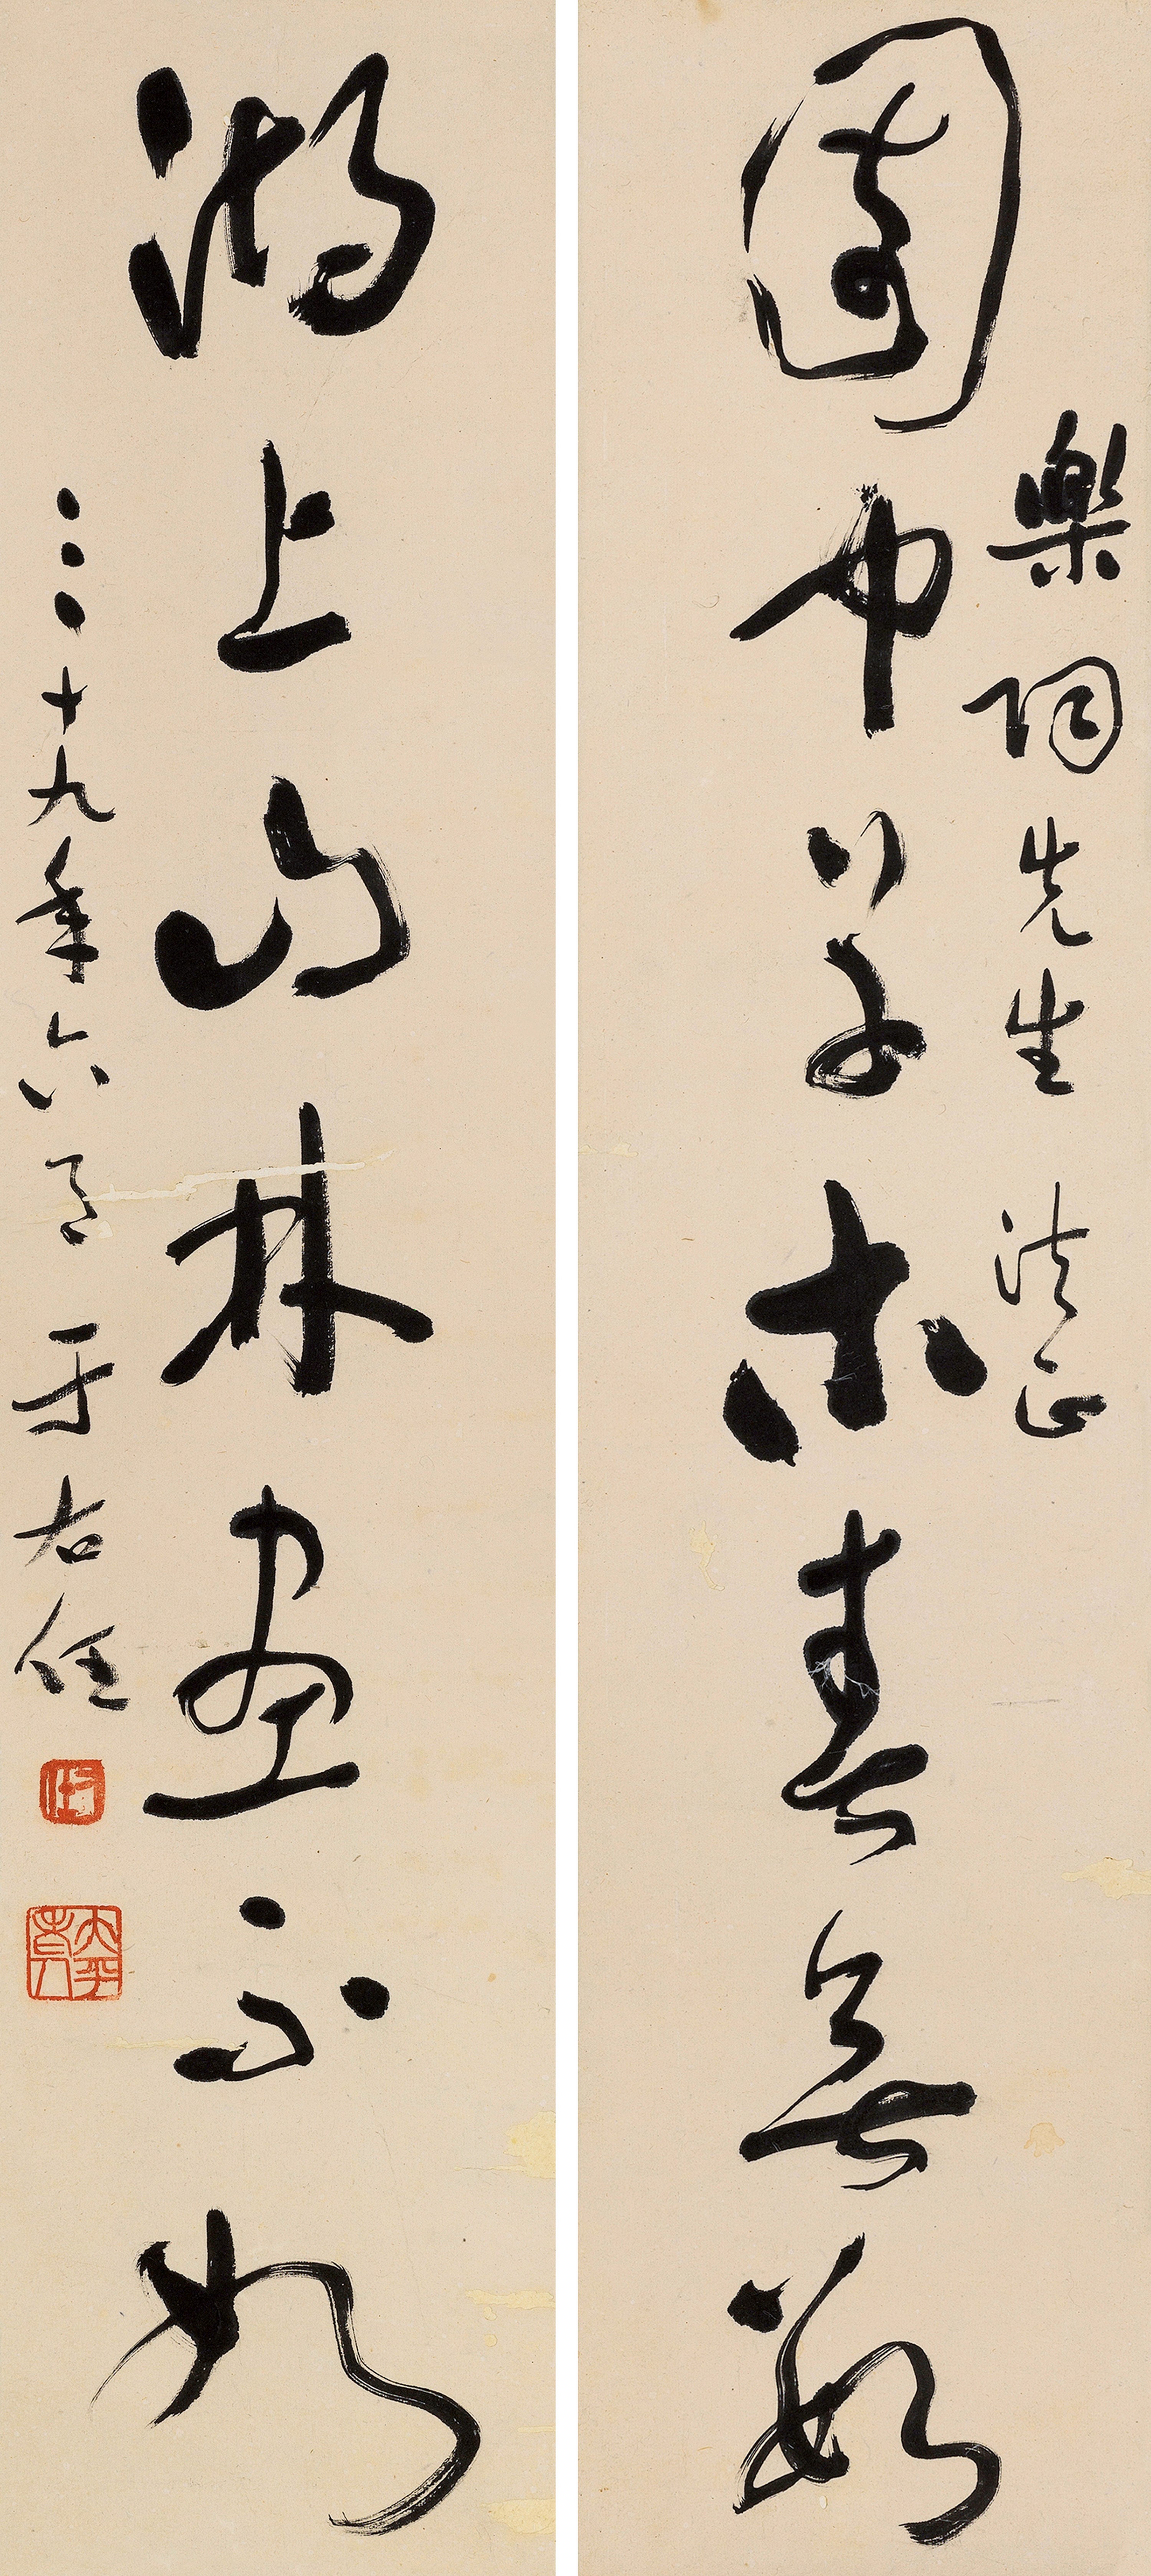 園中草木春無數
樂陶先生 法正
湖上山林畫不如
三十九年六月 于右任
右任
太平老人